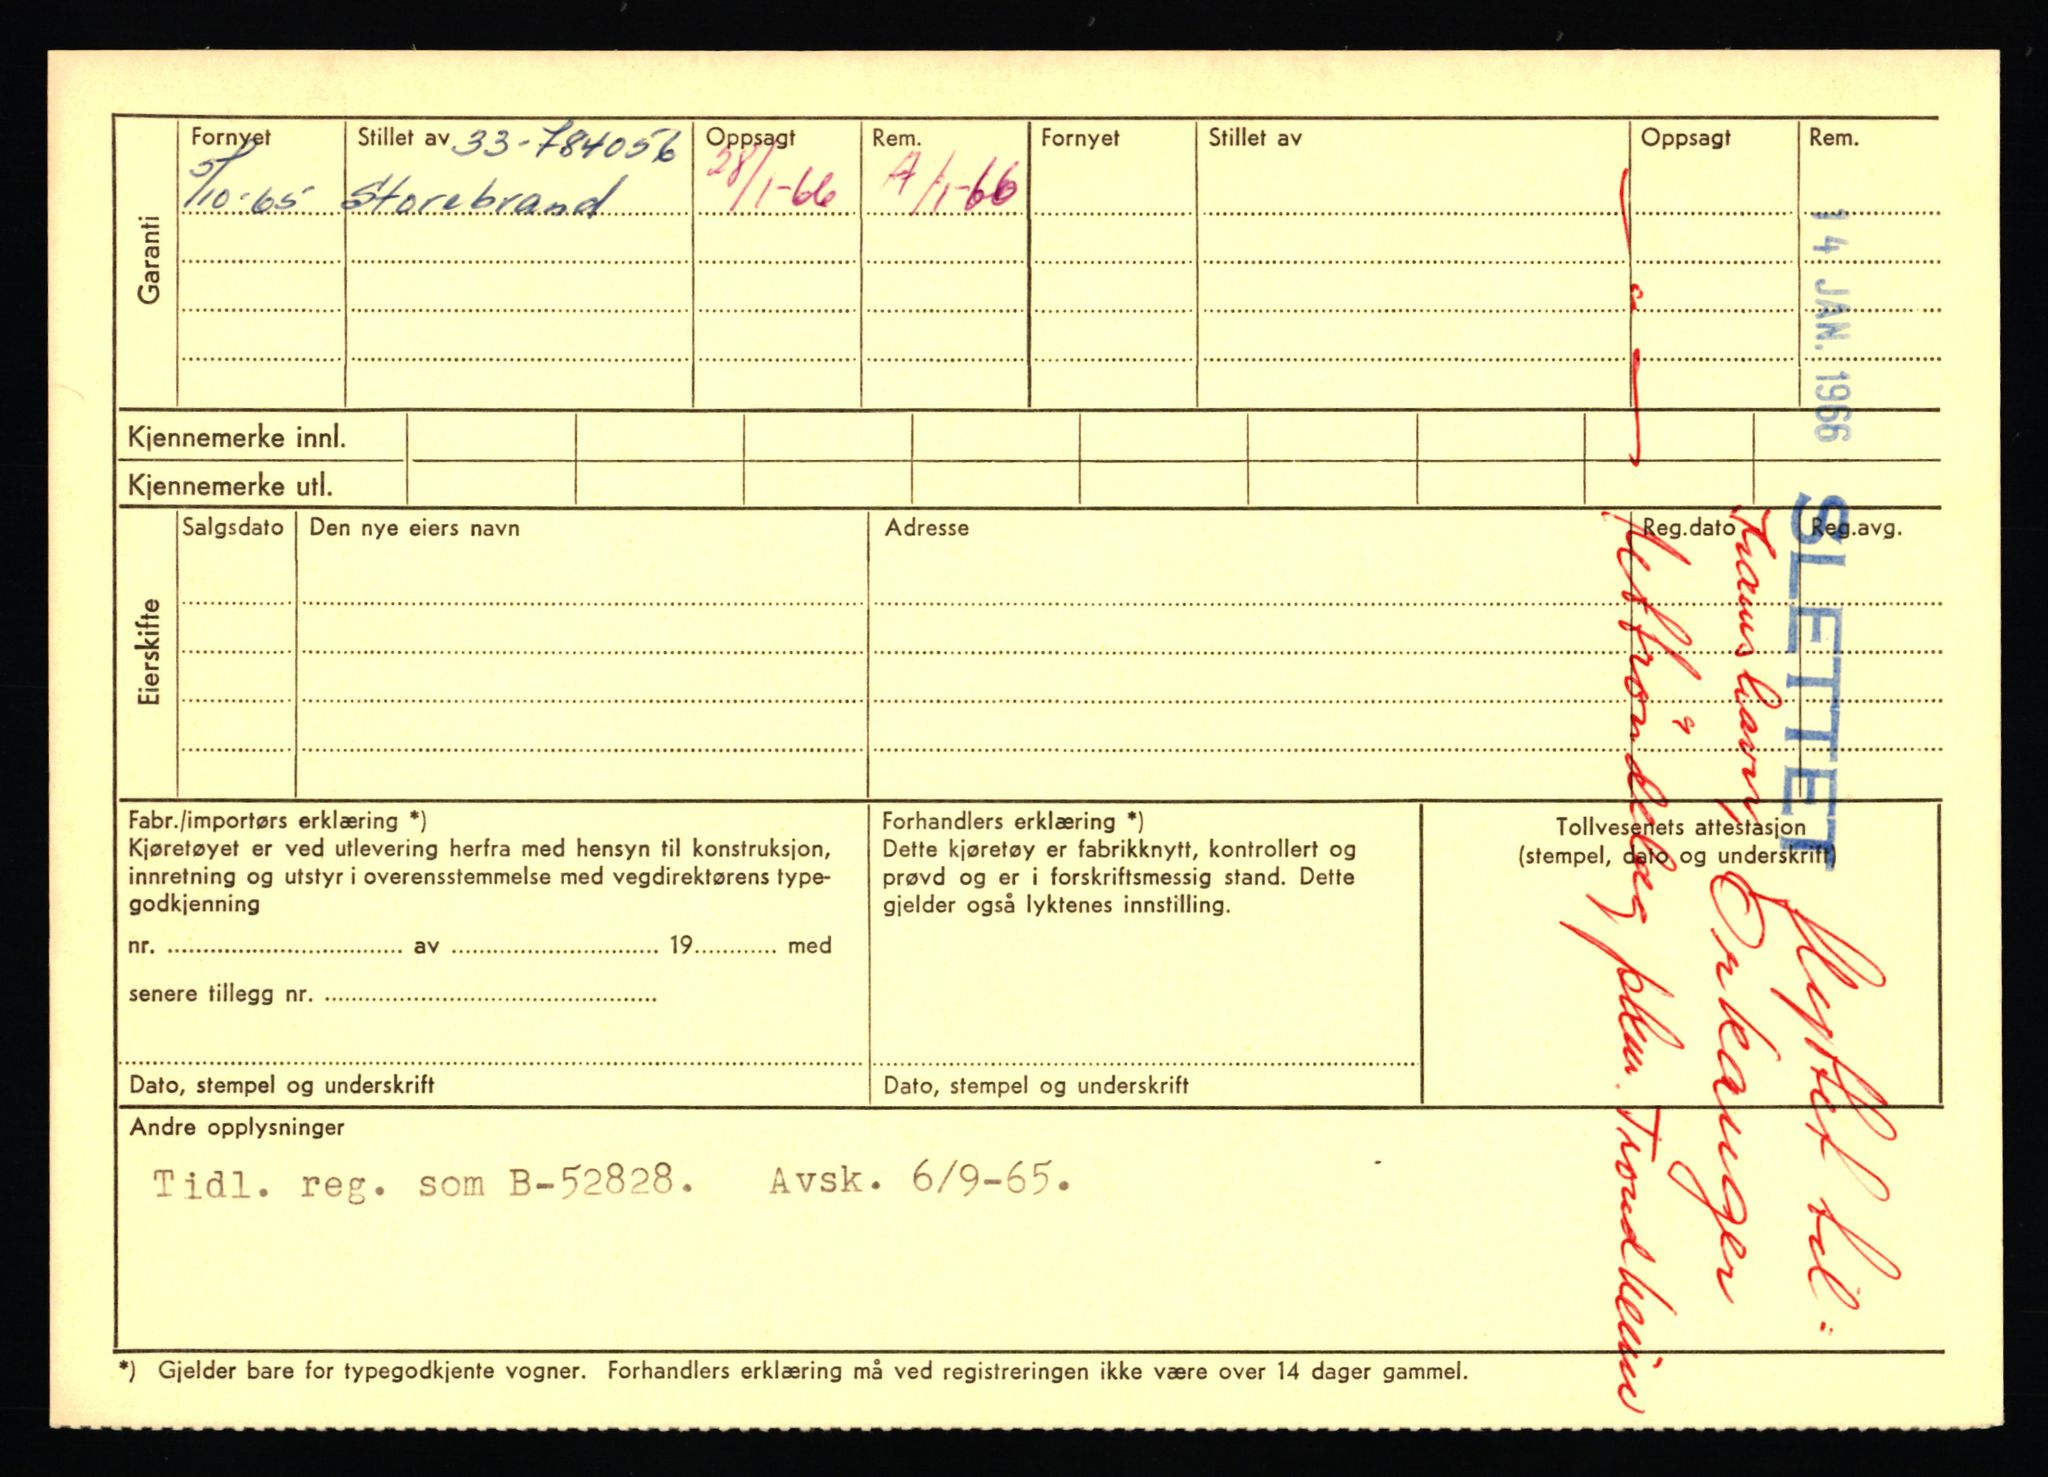 Garanti
Fornyet Stillet av 33-784056 Oppsagt Rem. Fornyet Stillet av Oppsagt Rem.
5/10-65 Storebrand 28/1-66 /1-66
Kjennemerke innl.
Kjennemerke utl.
Eierskifte
Salgsdato Den nye eiers navn Adresse Reg.dato Reg.avg.
Fabr./importørs erklæring *)
Kjøretøyet er ved utlevering herfra med hensyn til konstruksjon,
innretning og utstyr i overensstemmelse med vegdirektørens type-
godkjenning
nr. .............................. av .............................. 19............ med
senere tillegg nr. ................................................
Dato, stempel og underskrift
Forhandlers erklæring *)
Dette kjøretøy er fabrikknytt, kontrollert og
prøvd og er i forskriftsmessig stand. Dette
gjelder også lyktenes innstilling.
Dato, stempel og underskrift
Tollvesenets attestasjon
(stempel, dato og underskrift)
Andre opplysninger
Tidl. reg. som B-52828. Avsk. 6/9-65.
*) Gjelder bare for typegodkjente vogner. Forhandlers erklæring må ved registreringen ikke være over 14 dager gammel.
14 JAN. 1966 SLETTET
flyttet til:
Orkanger
Trondheim